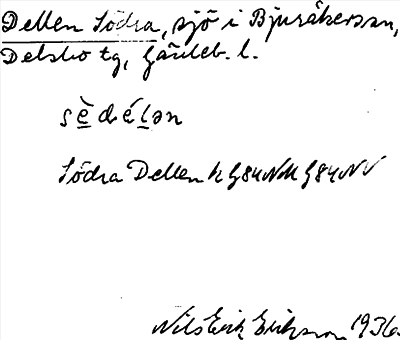 Dellen Södra, sjö i Bjuråkerssn,
Delsbo tg, Gävleb. l.
sèdélən
Södra Dellen k G84NV
Nils Erik Eriksson 1936.